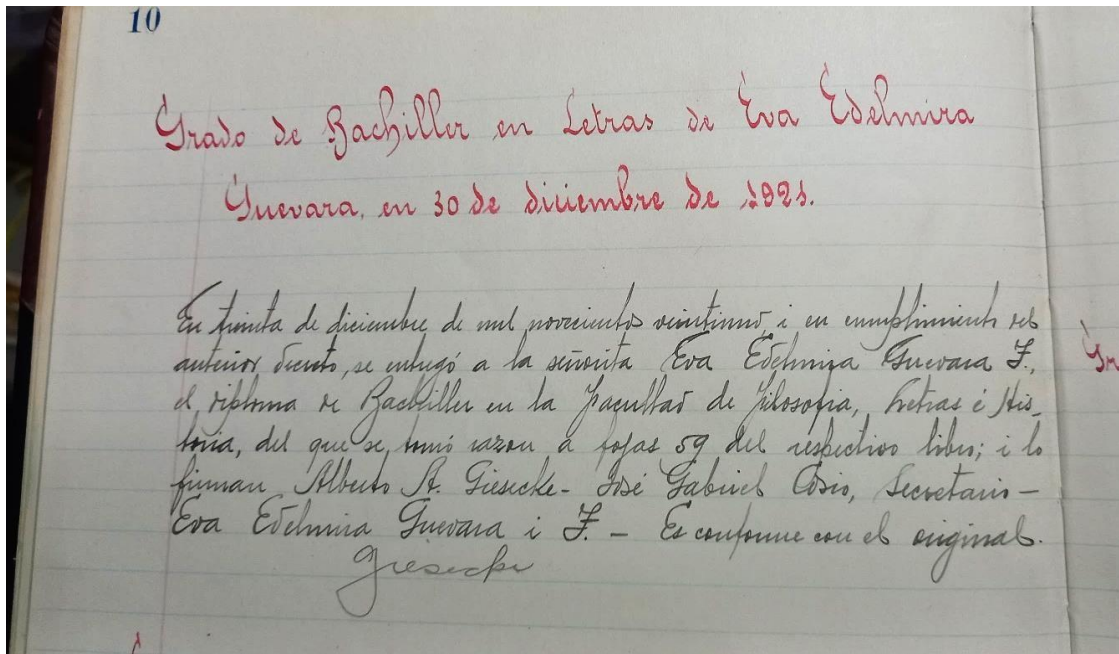 10
Grado de Bachiller en Letras de Eva Edelmira
Guevara, en 30 de diciembre de 1921.
En treinta de diciembre de mil novecientos veintiuno, i en cumplimiento del
anterior decreto, se entregó a la señorita Eva Edelmira Guevara F.,
el diploma de Bachiller en la Facultad de Filosofia, Letras é His-
toria, del que se tomó razon a fojas 59 del respectivo libro; i lo
firman Alberto A. Giesecke - José Gabriel Cosio, Secretario -
Eva Edelmira Guevara i F. - Es conforme con el original.
Giesecke